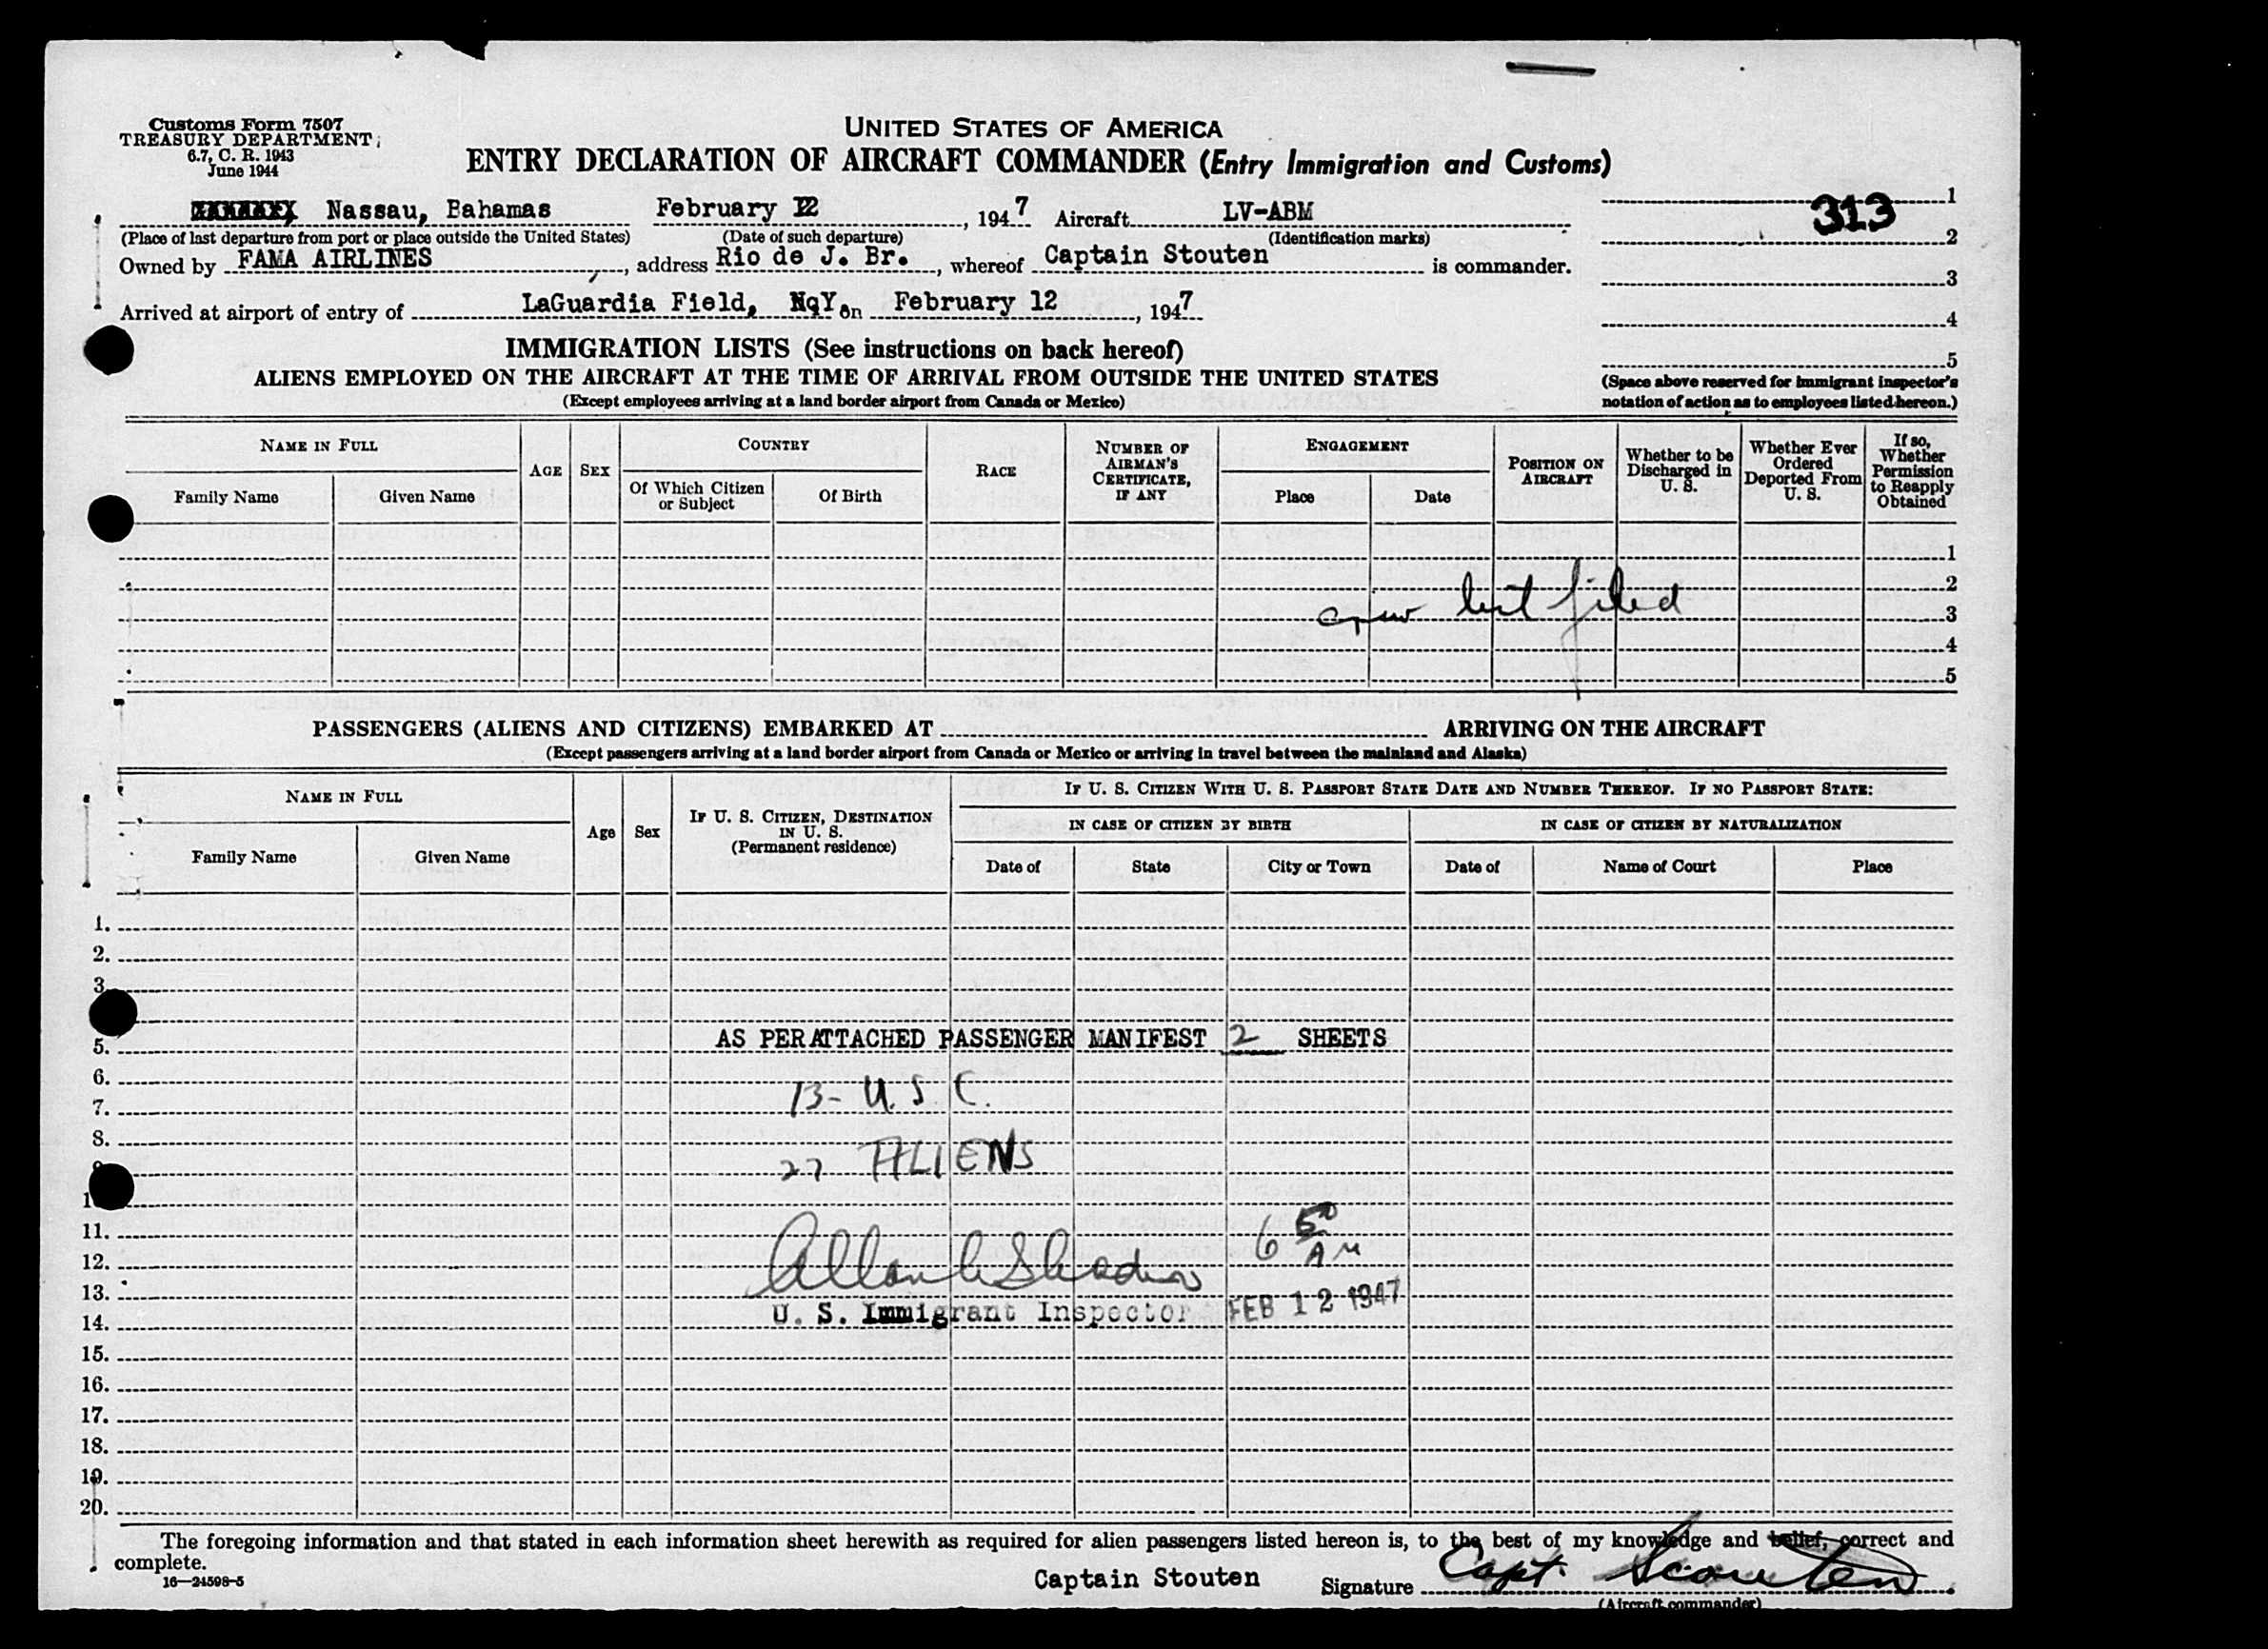 Customs Form 7507
TREASURY DEPARTMENT
6.7, C. R. 1943
June 1944
UNITED STATES OF AMERICA
ENTRY DECLARATION OF AIRCRAFT COMMANDER (Entry Immigration and Customs)
Nassau, Bahamas February 12, 1947 Aircraft LV-ABM
(Place of last departure from port or place outside the United States) (Date of such departure) (Identification marks)
Owned by FAMA AIRLINES, address Rio de J. Br., whereof Captain Stouten is commander.
Arrived at airport of entry of LaGuardia Field, NqY. on February 12, 1947
313
1
2
3
4
5
(Space above reserved for immigrant inspector's
notation of action as to employees listed hereon.)
IMMIGRATION LISTS (See instructions on back hereof)
ALIENS EMPLOYED ON THE AIRCRAFT AT THE TIME OF ARRIVAL FROM OUTSIDE THE UNITED STATES
(Except employees arriving at a land border airport from Canada or Mexico)
NAME IN FULL
Family Name
Given Name
AGE
SEX
COUNTRY
Of Which Citizen or Subject
Of Birth
RACE
NUMBER OF AIRMAN'S CERTIFICATE, IF ANY
ENGAGEMENT
Place
Date
POSITION ON AIRCRAFT
Whether to be Discharged in U. S.
Whether Ever Ordered Deported From U. S.
If so, Whether Permission to Reapply Obtained
1
2
crew list filed
3
4
5
PASSENGERS (ALIENS AND CITIZENS) EMBARKED AT ARRIVING ON THE AIRCRAFT
(Except passengers arriving at a land border airport from Canada or Mexico or arriving in travel between the mainland and Alaska)
NAME IN FULL
Family Name
Given Name
Age
Sex
IF U. S. CITIZEN, DESTINATION IN U. S.
(Permanent residence)
IF U. S. CITIZEN WITH U. S. PASSPORT STATE DATE AND NUMBER THEREOF. IF NO PASSPORT STATE:
IN CASE OF CITIZEN BY BIRTH
Date of
State
City or Town
IN CASE OF CITIZEN BY NATURALIZATION
Date of
Name of Court
Place
1.
2.
3.
5. AS PER ATTACHED PASSENGER MANIFEST 2 SHEETS
6.
7. 13- U. S C.
8.
27 ALIENS
11.
12. 6 50 AM
13.
14. U. S. Immigrant Inspector FEB 12 1947
15.
16.
17.
18.
19.
20.
The foregoing information and that stated in each information sheet herewith as required for alien passengers listed hereon is, to the best of my knowledge and belief, correct and
complete.
16—24598-5
Captain Stouten Signature Capt. Scouten
(Aircraft commander)